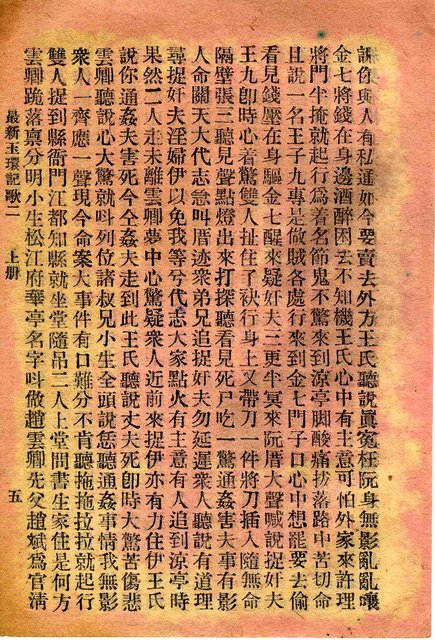 誰你與人有私通如今要賣去外方王氏聽説眞冤枉阮身無影亂亂嚷
金七將錢在身邊酒醉困去不知機王氏心中有主意可怕外家來許理
將門半掩就起行爲着名節鬼不驚來到涼亭脚酸痛拔落路中苦切命
且説一名王子九專是做賊各處行來到金七門子口心中想罷要去偷
看見錢壓在身驅金七醒來疑奸夫三更半冥來阮厝大聲喊説捉奸夫
王九卽時心着驚雙人扯住了袂行身上又帶刀一件將刀插入隨無命
隔壁張三聽見聲點燈出來打探聽看見死尸吃一驚通姦害夫事有影
人命關天大代志急叫厝迹衆弟兄追捉奸夫勿延遲衆人聽説有道理
尋捉奸夫淫婦伊以免我等兮代志大家點火有主意有人追到涼亭時
果然二人走未離雲卿夢中心驚疑衆人近前來捉伊亦有力住伊王氏
説你通姦夫害死今仝姦夫走到此王氏聽説丈夫死卽時大驚苦傷悲
雲卿聽説心大驚就叫列位諸叔兄小生全頭説恁聽通姦事情我無影
衆人一齊應一聲現今命案大事件有口難分不肯聽拖拖拉拉就起行
雙人提到縣衙門江都知縣就坐堂隨吊二人上堂問書生家住是何方
雲卿跪落禀分明小生松江府華亭名字叫做趙雲卿先父趙斌爲官淸
最新玉環記歌二 上册 五